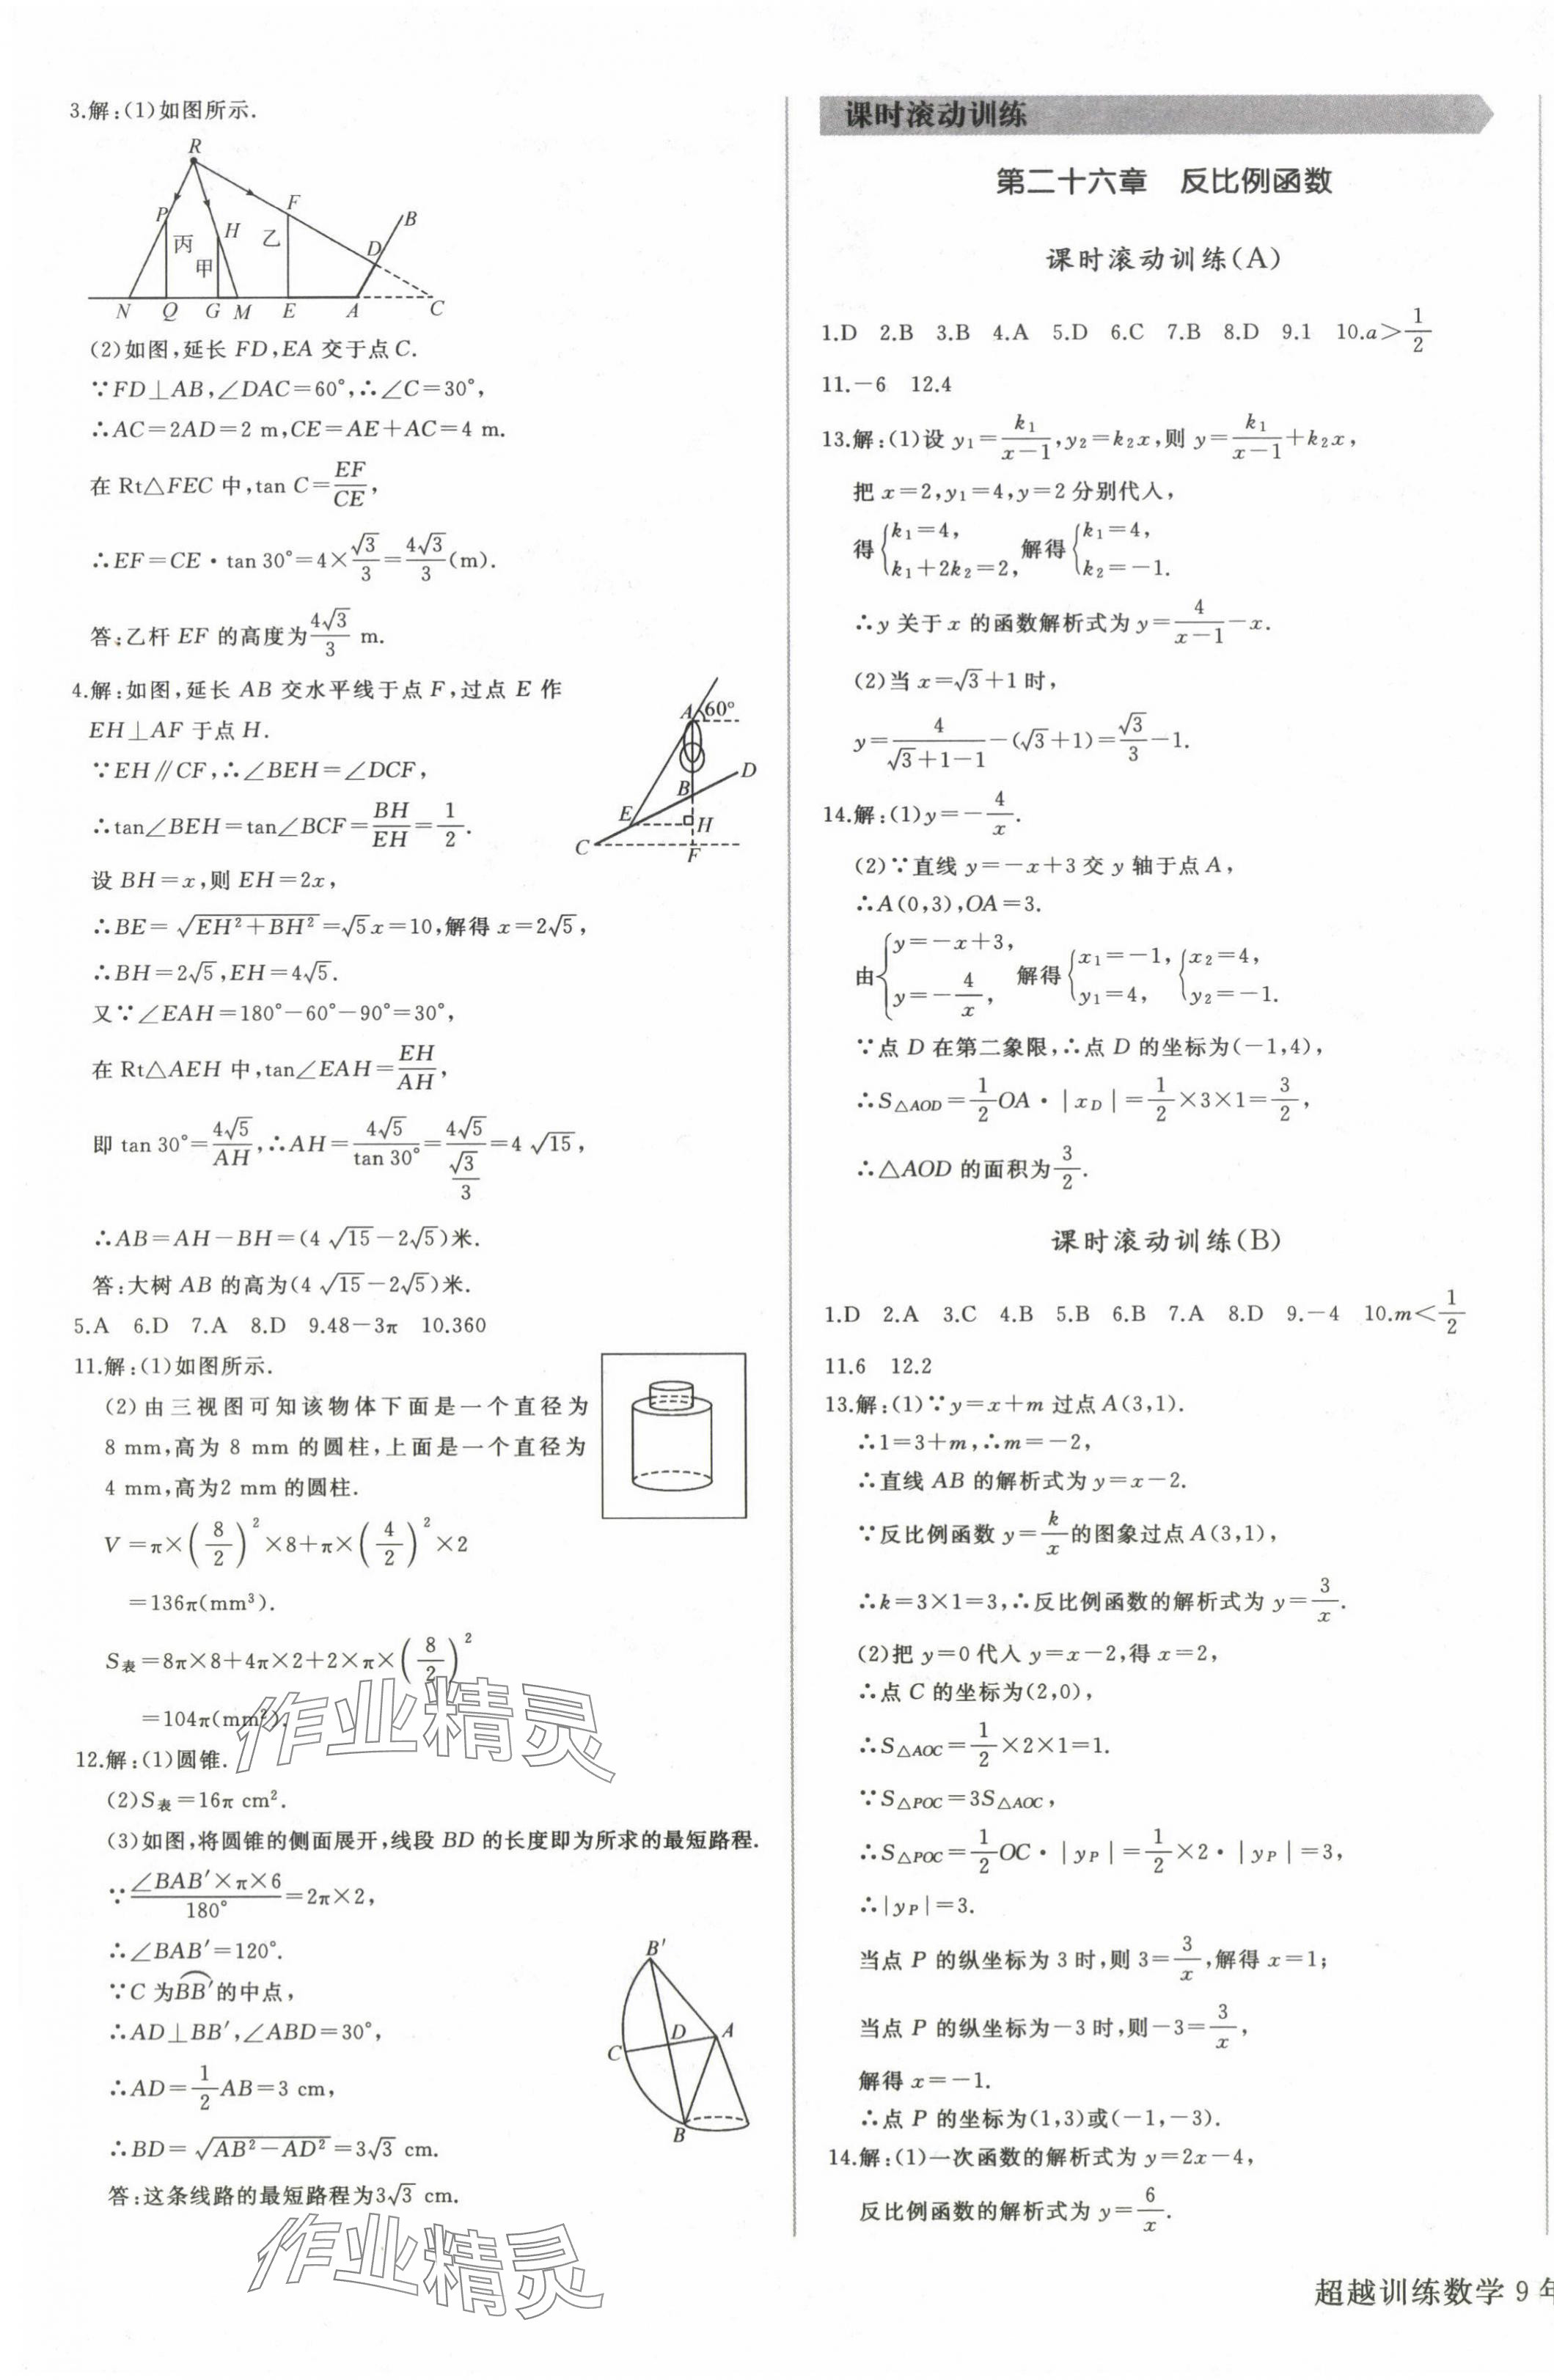 3.解:(1)如图所示.
R
P
丙
H
甲
乙
F
D
B
N Q G M E A C
(2)如图,延长 FD,EA 交于点 C.
∵FD⊥AB,∠DAC=60°,∴∠C=30°,
∴AC=2AD=2 m,CE=AE+AC=4 m.
在 Rt△FEC 中,tan C=EF/CE,
∴EF=CE·tan 30°=4×√3/3=4√3/3(m).
答:乙杆 EF 的高度为4√3/3 m.
4.解:如图,延长 AB 交水平线于点 F,过点 E 作
EH⊥AF 于点 H.
∵EH∥CF,∴∠BEH=∠DCF,
∴tan∠BEH=tan∠BCF=BH/EH=1/2.
设 BH=x,则 EH=2x,
∴BE=√(EH²+BH²)=√5x=10,解得 x=2√5,
∴BH=2√5,EH=4√5.
又∵∠EAH=180°-60°-90°=30°,
在 Rt△AEH 中,tan∠EAH=EH/AH,
即 tan 30°=4√5/AH,∴AH=4√5/tan 30°=4√5/(√3/3)=4√15,
∴AB=AH-BH=(4√15-2√5)米.
答:大树 AB 的高为(4√15-2√5)米.
A 60°
D
B
E
H
C
F
5.A 6.D 7.A 8.D 9.48-3π 10.360
11.解:(1)如图所示.
(2)由三视图可知该物体下面是一个直径为
8 mm,高为 8 mm 的圆柱,上面是一个直径为
4 mm,高为2 mm 的圆柱.
V=π×(8/2)²×8+π×(4/2)²×2
=136π(mm³).
S表=8π×8+4π×2+2×π×(8/2)²
=104π(mm²).
12.解:(1)圆锥.
(2)S表=16π cm².
(3)如图,将圆锥的侧面展开,线段 BD 的长度即为所求的最短路程.
∵∠BAB′×π×6/180°=2π×2,
∴∠BAB′=120°.
∵C 为BB′的中点,
∴AD⊥BB′,∠ABD=30°,
∴AD=1/2AB=3 cm,
∴BD=√(AB²-AD²)=3√3 cm.
答:这条线路的最短路程为3√3 cm.
B′
D
A
C
B
作业精灵
作业精灵
课时滚动训练
第二十六章 反比例函数
课时滚动训练(A)
1.D 2.B 3.B 4.A 5.D 6.C 7.B 8.D 9.1 10.a>1/2
11.-6 12.4
13.解:(1)设 y₁=k₁/(x-1),y₂=k₂x,则 y=k₁/(x-1)+k₂x,
把 x=2,y₁=4,y=2 分别代入,
得{k₁=4, k₁+2k₂=2, 解得{k₁=4, k₂=-1.
∴y 关于 x 的函数解析式为 y=4/(x-1)-x.
(2)当 x=√3+1 时,
y=4/(√3+1-1)-(√3+1)=√3/3-1.
14.解:(1)y=-4/x.
(2)∵直线 y=-x+3 交 y 轴于点 A,
∴A(0,3),OA=3.
由{y=-x+3, y=-4/x, 解得{x₁=-1, y₁=4, {x₂=4, y₂=-1.
∵点 D 在第二象限,∴点 D 的坐标为(-1,4),
∴S△AOD=1/2OA·|xD|=1/2×3×1=3/2,
∴△AOD 的面积为3/2.
课时滚动训练(B)
1.D 2.A 3.C 4.B 5.B 6.B 7.A 8.D 9.-4 10.m<1/2
11.6 12.2
13.解:(1)∵y=x+m 过点 A(3,1).
∴1=3+m,∴m=-2,
∴直线 AB 的解析式为 y=x-2.
∵反比例函数 y=k/x的图象过点 A(3,1),
∴k=3×1=3,∴反比例函数的解析式为 y=3/x.
(2)把 y=0 代入 y=x-2,得 x=2,
∴点 C 的坐标为(2,0),
∴S△AOC=1/2×2×1=1.
∵S△POC=3S△AOC,
∴S△POC=1/2OC·|yP|=1/2×2·|yP|=3,
∴|yP|=3.
当点 P 的纵坐标为 3 时,则 3=3/x,解得 x=1;
当点 P 的纵坐标为-3 时,则-3=3/x,
解得 x=-1.
∴点 P 的坐标为(1,3)或(-1,-3).
14.解:(1)一次函数的解析式为 y=2x-4,
反比例函数的解析式为 y=6/x.
超越训练数学 9 年